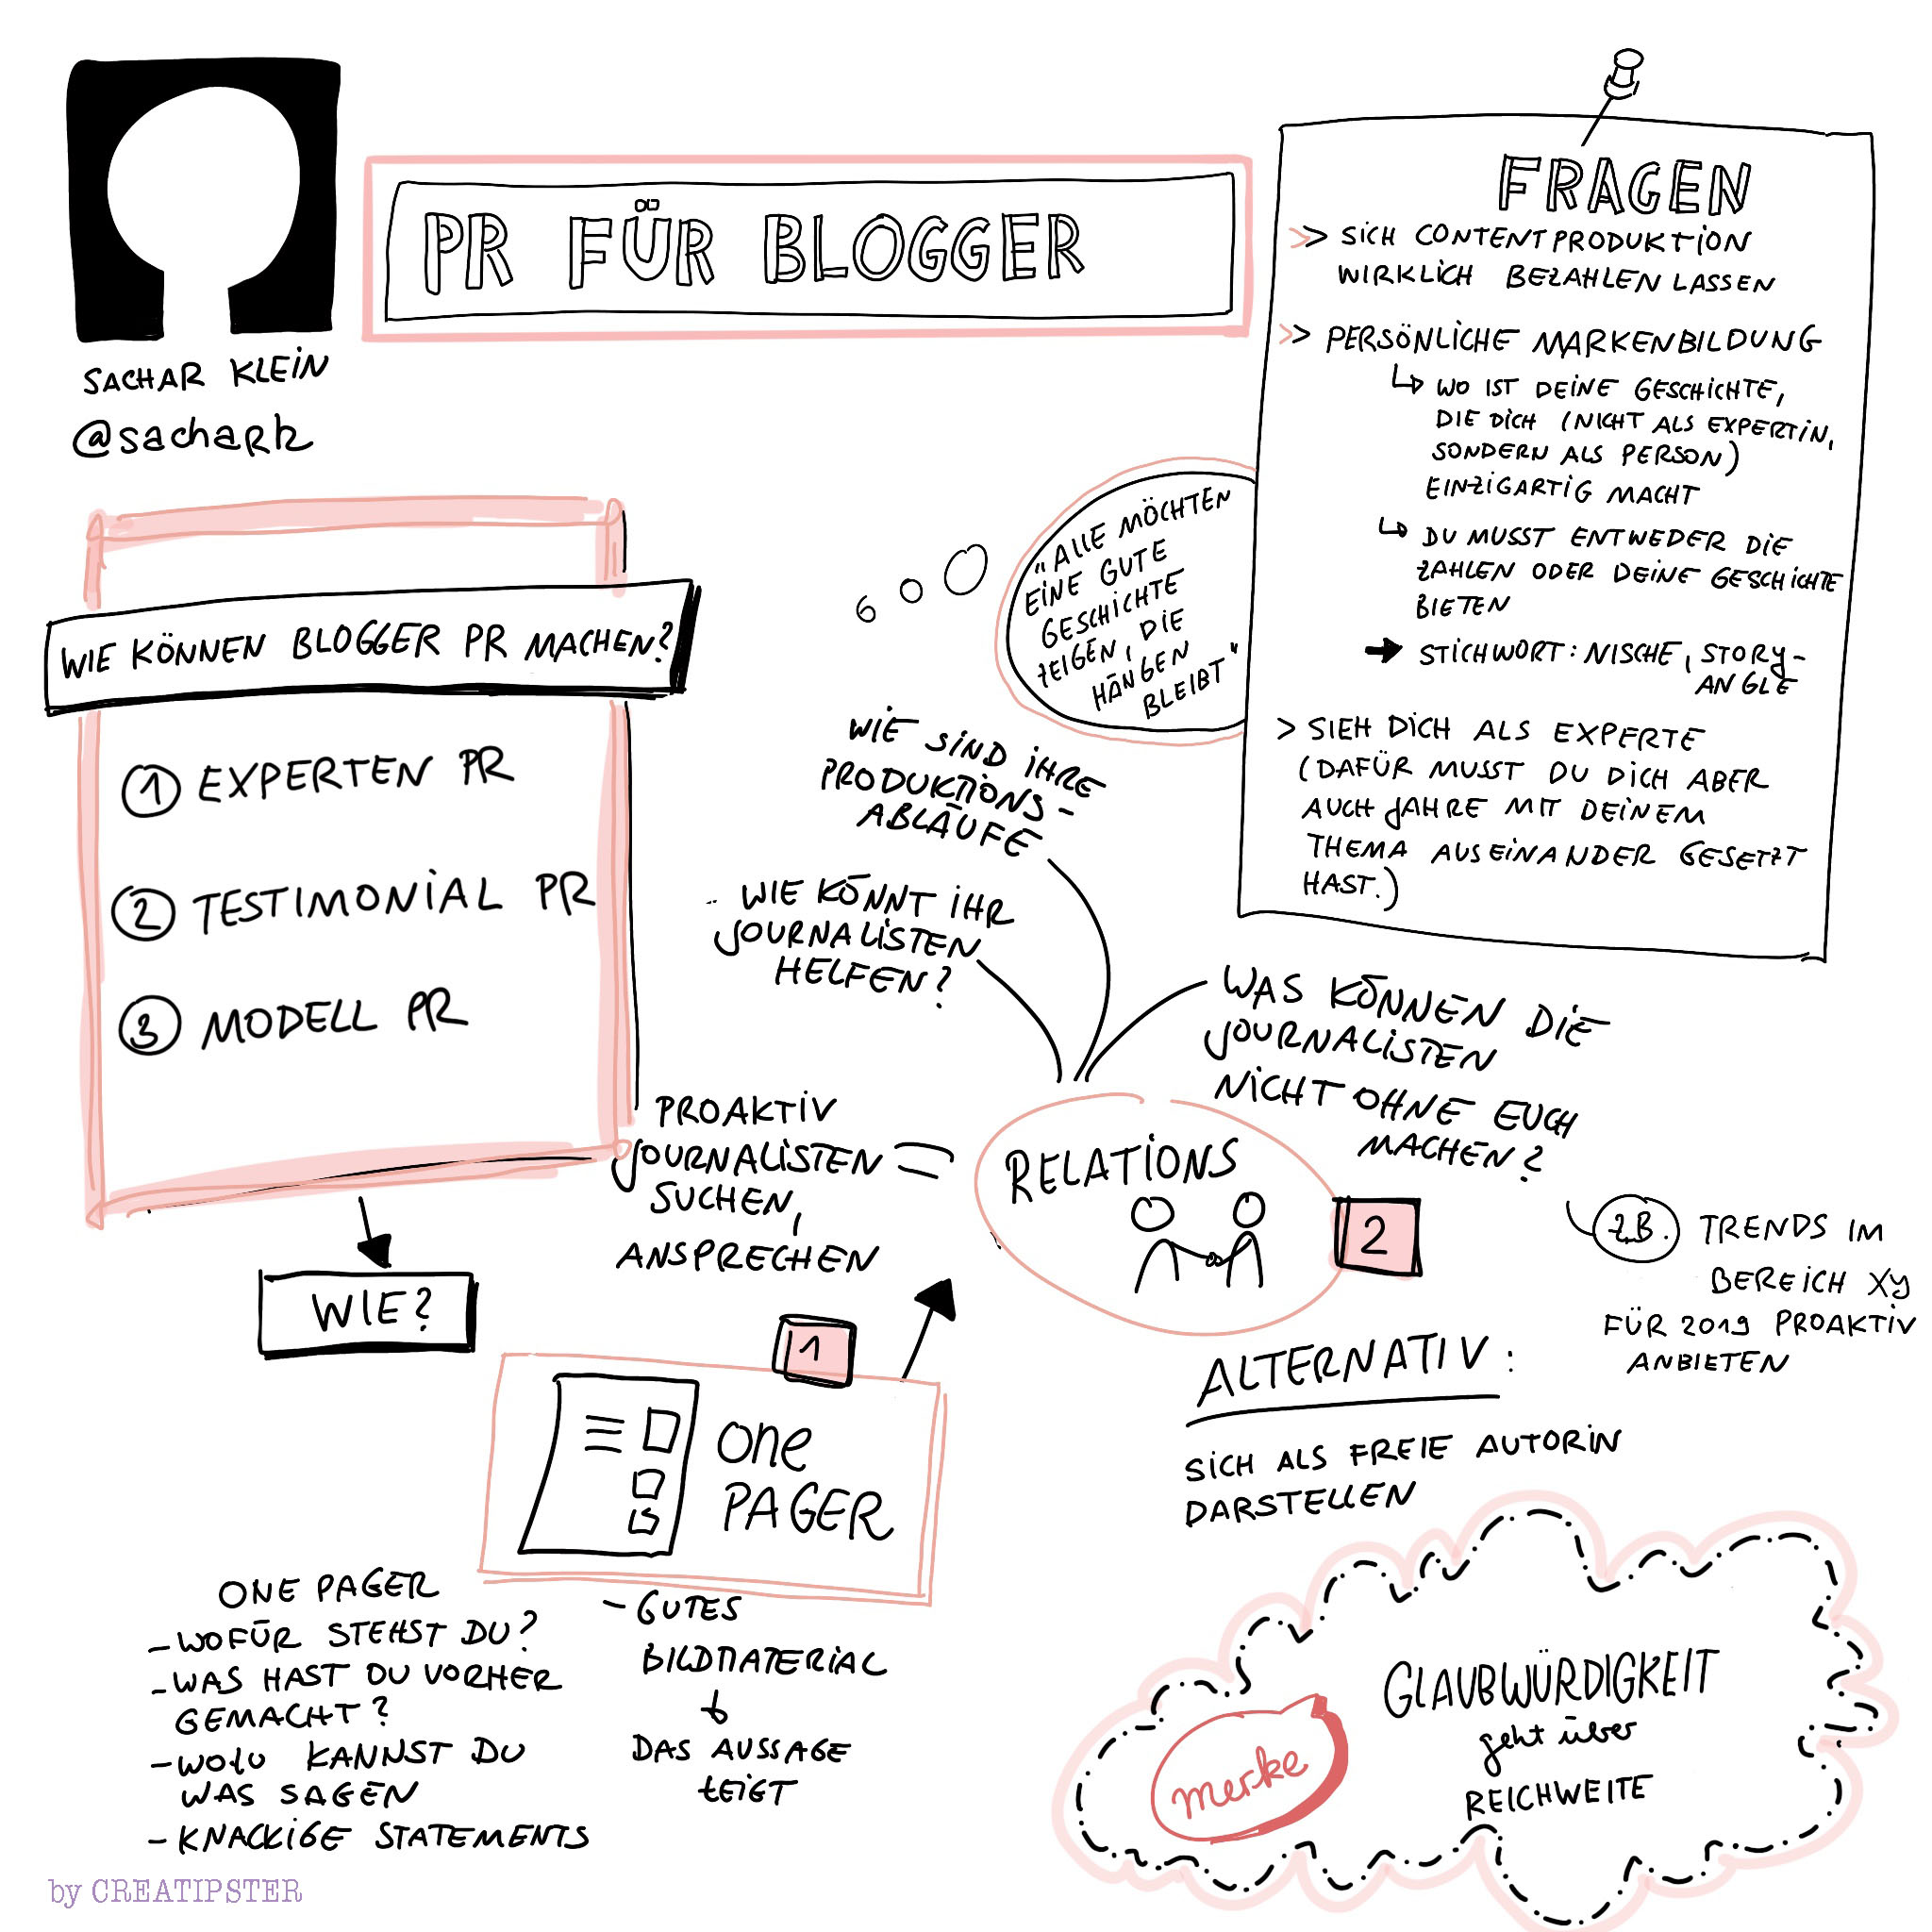 PR FÜR BLOGGER
SACHAR KLEIN
@sachark
FRAGEN
>> SICH CONTENTPRODUKTION
WIRKLICH BEZAHLEN LASSEN
>> PERSÖNLICHE MARKENBILDUNG
↳ WO IST DEINE GESCHICHTE,
DIE DICH (NICHT ALS EXPERTIN,
SONDERN ALS PERSON)
EINZIGARTIG MACHT
↳ DU MUSST ENTWEDER DIE
ZAHLEN ODER DEINE GESCHICHTE
BIETEN
➔ STICHWORT: NISCHE, STORY-
ANGLE
> SIEH DICH ALS EXPERTE
(DAFÜR MUSST DU DICH ABER
AUCH JAHRE MIT DEINEM
THEMA AUSEINANDER GESETZT
HAST.)
WIE KÖNNEN BLOGGER PR MACHEN?
1 EXPERTEN PR
2 TESTIMONIAL PR
3 MODELL PR
WIE?
"ALLE MÖCHTEN
EINE GUTE
GESCHICHTE
ZEIGEN, DIE
HÄNGEN
BLEIBT"
WIE SIND IHRE
PRODUKTIONS-
ABLÄUFE
WIE KÖNNT IHR
JOURNALISTEN
HELFEN?
WAS KÖNNEN DIE
JOURNALISTEN
NICHT OHNE EUCH
MACHEN?
Z.B. TRENDS IM
BEREICH XY
FÜR 2019 PROAKTIV
ANBIETEN
PROAKTIV
JOURNALISTEN =
SUCHEN,
ANSPRECHEN
RELATIONS
2
ALTERNATIV:
SICH ALS FREIE AUTORIN
DARSTELLEN
1
ONE
PAGER
ONE PAGER
- WOFÜR STEHST DU?
- WAS HAST DU VORHER
GEMACHT?
- WOZU KANNST DU
WAS SAGEN
- KNACKIGE STATEMENTS
- GUTES
BILDMATERIAL
↳
DAS AUSSAGE
ZEIGT
merke
GLAUBWÜRDIGKEIT
geht über
REICHWEITE
by CREATIPSTER